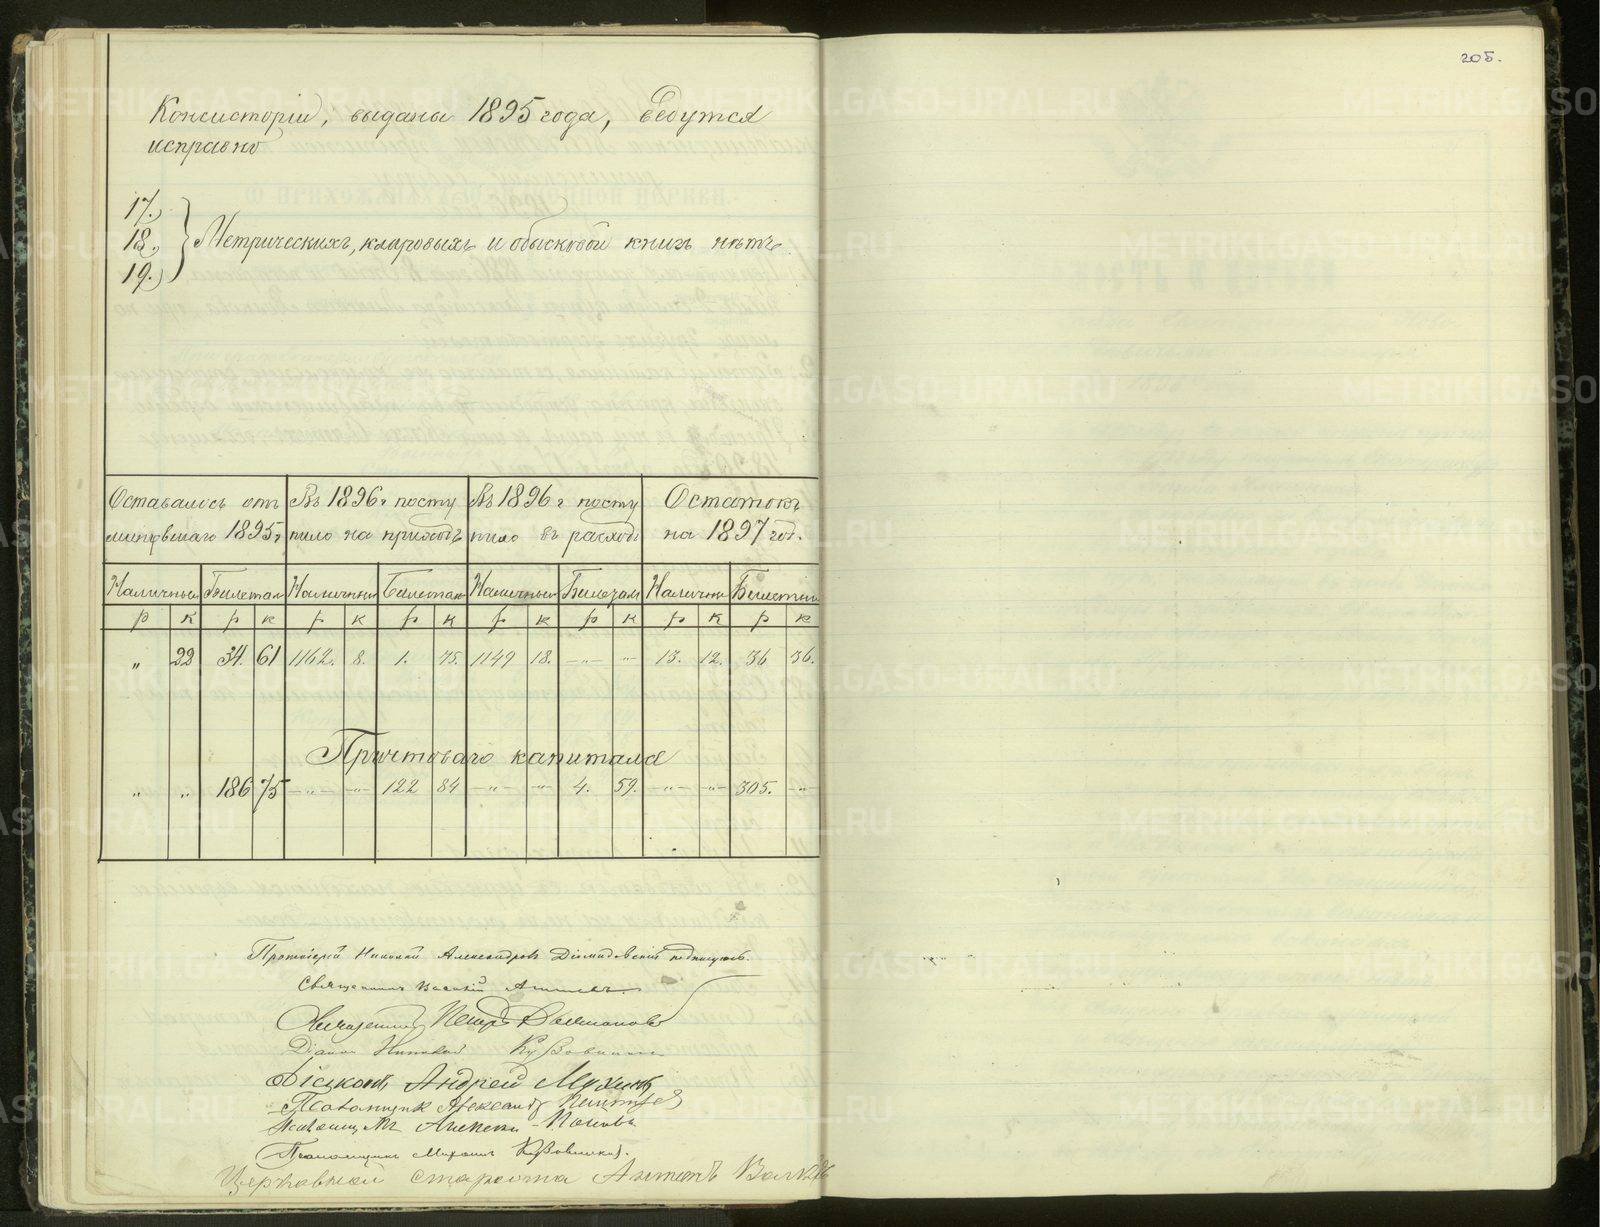 205.
Консисторіи, выданы 1895 года, ведутся
исправно
17.
18.
19.
Метрическихъ, клировыхъ и обыскной книгъ нѣтъ.
Оставалось отъ минувшаго 1895 г
Въ 1896 г посту пило на приходъ
Въ 1896 г посту пило въ расходъ
Остатокъ на 1897 год.
Наличными Билетами Наличными Билетами Наличными Билетами Наличными Билетами
р к р к р к р к р к р к р к р к
„ 22 34. 61 1162. 8. 1. 75. 1149 18. —„— —„— 13. 12. 36 36.
Причтоваго капитала
„ „ 186 75 —„— —„— 122 84 —„— —„— 4. 59. —„— —„— 305. —„—
Протоіерей Николай Александровъ Діомидовскій подписуюсь.
Священникъ Василій
Петръ
Діаконъ Николай
Діаконъ Андрей Мухинъ
Псаломщикъ Александръ
Псаломщикъ Алексей Поповъ
Псаломщикъ Михаилъ
Церковной староста Антонъ
METRIKI.GASO-URAL.RU